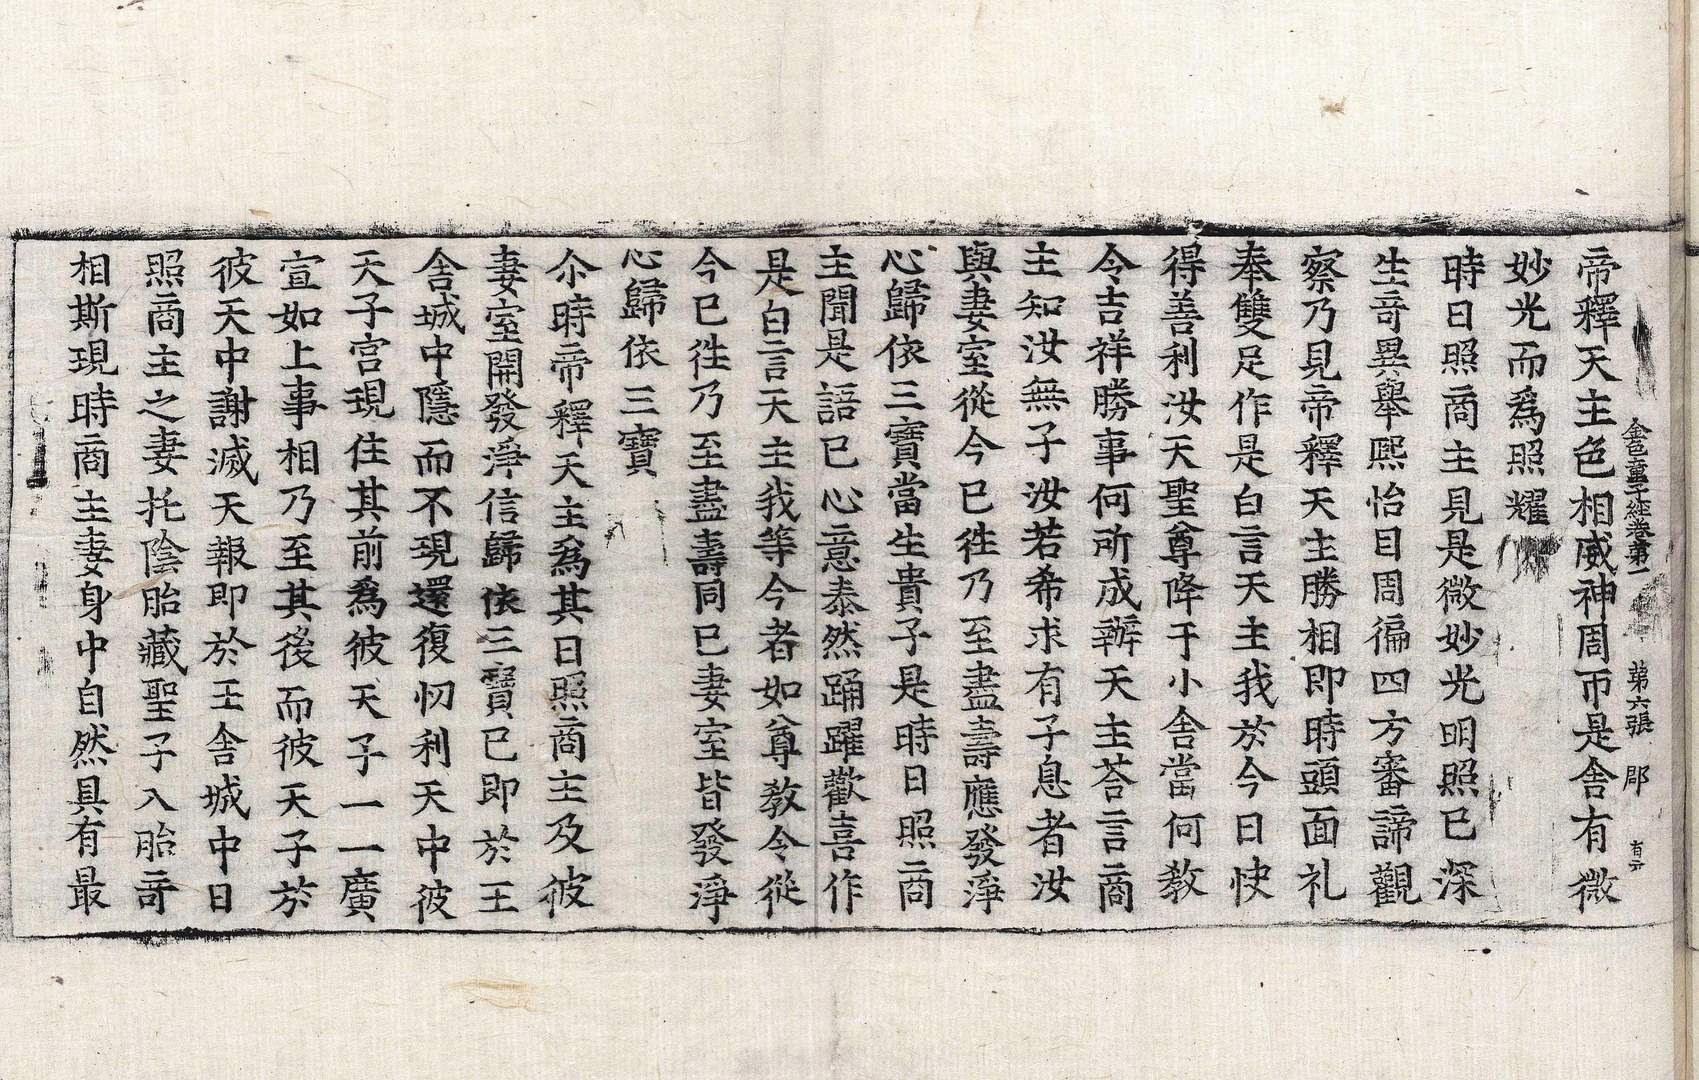 金色童子經卷第一　第六張　郡
帝釋天主色相威神周帀是舍有微
妙光而爲照耀
時日照商主見是微妙光明照已深
生竒異舉熈怡目周徧四方審諦觀
察乃見帝釋天主勝相即時頭面礼
奉雙足作是白言天主我於今日快
得善利汝天聖尊降于小舍當何教
令吉祥勝事何所成辦天主荅言商
主知汝無子汝若希求有子息者汝
與妻室從今已徃乃至盡壽應發淨
心歸依三寶當生貴子是時日照商
主聞是語已心意泰然踊躍歡喜作
是白言天主我等今者如尊教令從
今已徃乃至盡壽同已妻室皆發淨
心歸依三寶
尒時帝釋天主爲其日照商主及彼
妻室開發淨信歸依三寶已即於王
舍城中隱而不現還復忉利天中彼
天子宮現住其前爲彼天子一一廣
宣如上事相乃至其後而彼天子於
彼天中謝滅天報即於王舍城中日
照商主之妻托陰胎藏聖子入胎竒
相斯現時商主妻身中自然具有最